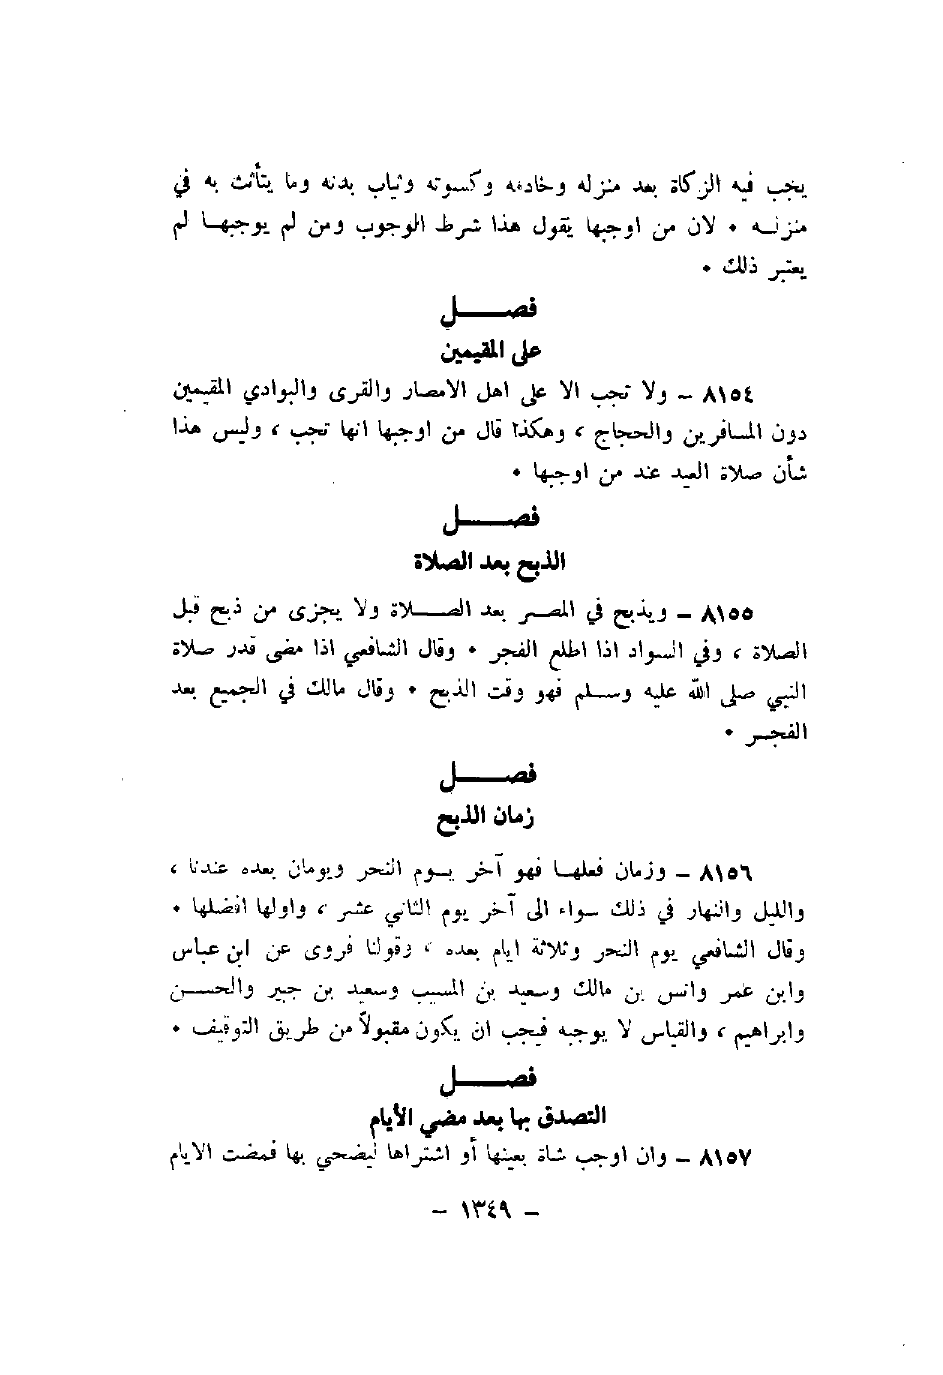 يجب فيه الزكاة بعد منزله وخادمه وكسوته وثياب بدنه وما يتأثث به في
منزلـه • لان من اوجبها يقول هذا شرط الوجوب ومن لم يوجبهـا لم
يعتبر ذلك •
فصـــــل
على المقيمين
٨١٥٤ ـ ولا تجب الا على اهل الامصار والقرى والبوادي المقيمين
دون المسافرين والحجاج ، وهكذا قال من اوجبها انها تجب ، وليس هذا
شأن صلاة العيد عند من اوجبها •
فصـــــل
الذبح بعد الصلاة
٨١٥٥ ـ ويذبح في المصـر بعد الصـــلاة ولا يجزى من ذبح قبل
الصلاة ، وفي السواد اذا اطلع الفجر • وقال الشافعي اذا مضى قدر صلاة
النبي صلى الله عليه وسـلم فهو وقت الذبح • وقال مالك في الجميع بعد
الفجـر •
فصـــــل
زمان الذبح
٨١٥٦ ـ وزمان فعلهـا فهو آخر يـوم النحر ويومان بعده عندنا ،
والليل والنهار في ذلك سواء الى آخر يوم الثاني عشـر ، واولها افضلها •
وقال الشافعي يوم النحر وثلاثة ايام بعده ، وقولنا فروى عن ابن عباس
وابن عمر وانس بن مالك وسعيد بن المسيب وسعيد بن جبير والحسـن
وابراهيم ، والقياس لا يوجبه فيجب ان يكون مقبولاً من طريق التوقيف •
فصـــــل
التصدق بها بعد مضي الأيام
٨١٥٧ ـ وان اوجب شاة بعينها أو اشتراها ليضحي بها فمضت الايام
ـ ١٣٤٩ ـ